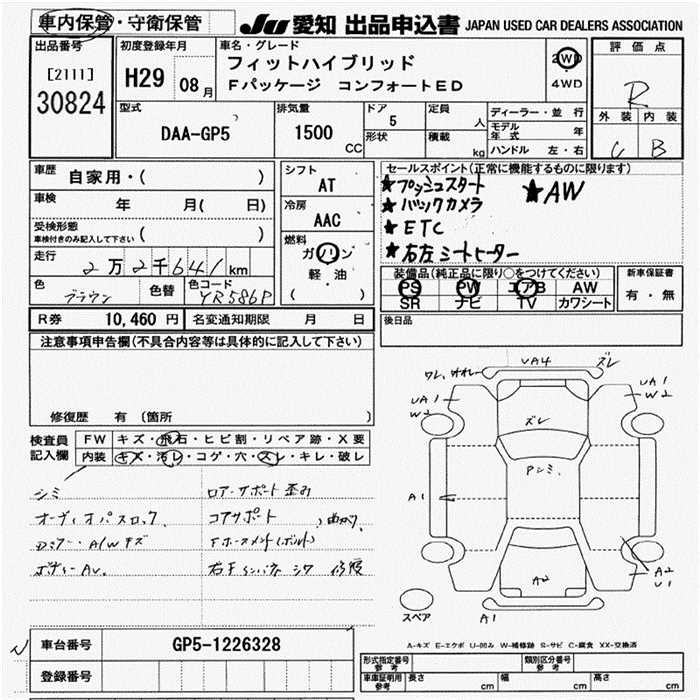 車内保管・守衛保管
JU 愛知 出品申込書 JAPAN USED CAR DEALERS ASSOCIATION
出品番号
[2111]
30824
初度登録年月
H29 08月
車名・グレード
フィットハイブリッド
Fパッケージ コンフォートED
2WD
4WD
評価点
R
外装 内装
C B
型式
DAA-GP5
排気量
1500 CC
ドア 5
形状
定員 人
積載 kg
ディーラー・並行
モデル年式 年
ハンドル 左・右
車歴 自家用・( )
車検 年 月( 日)
受検形態
車検付きのみ記入して下さい ( )
走行 2万2千641km
色 ブラウン 色替 色コード YR586P
シフト
AT
冷房
AAC
燃料
ガソリン
軽・油
( )
セールスポイント(正常に機能するものに限ります)
★プッシュスタート ★AW
★バックカメラ
★ETC
★右左シートヒーター
装備品(純正品に限り○をつけてください)
PS PW エアB AW
SR ナビ TV カワシート
新車保証書
有・無
R券 10,460円 名変通知期限 月 日
後日品
注意事項申告欄(不具合内容等は具体的に記入して下さい)
修復歴 有 (箇所 )
検査員記入欄
FW キズ・飛石・ヒビ割・リペア跡・X要
内装 キズ・汚レ・コゲ・穴・スレ・キレ・破レ
シミ
オーディオパスロック
Dミラー・A/Wキズ
ボディーAU.
ロアーサポート歪み
コアサポート 曲がり
Fホースメント(ボルト)
右F インパネ シワ 修復
ワレ、オオレ UA4 ズレ
UA1
W2
UA1
W2
ズレ
Pシミ.
A1
A2
A2
U1
スペア
A1
A-キズ E-エクボ U-凹み W-補修跡 S-サビ C-腐食 XX-交換済
車台番号 GP5-1226328
登録番号
形式指定番号 参考
類別区分番号 参考
車庫証明用 参考 長さ cm 幅 cm 高さ cm